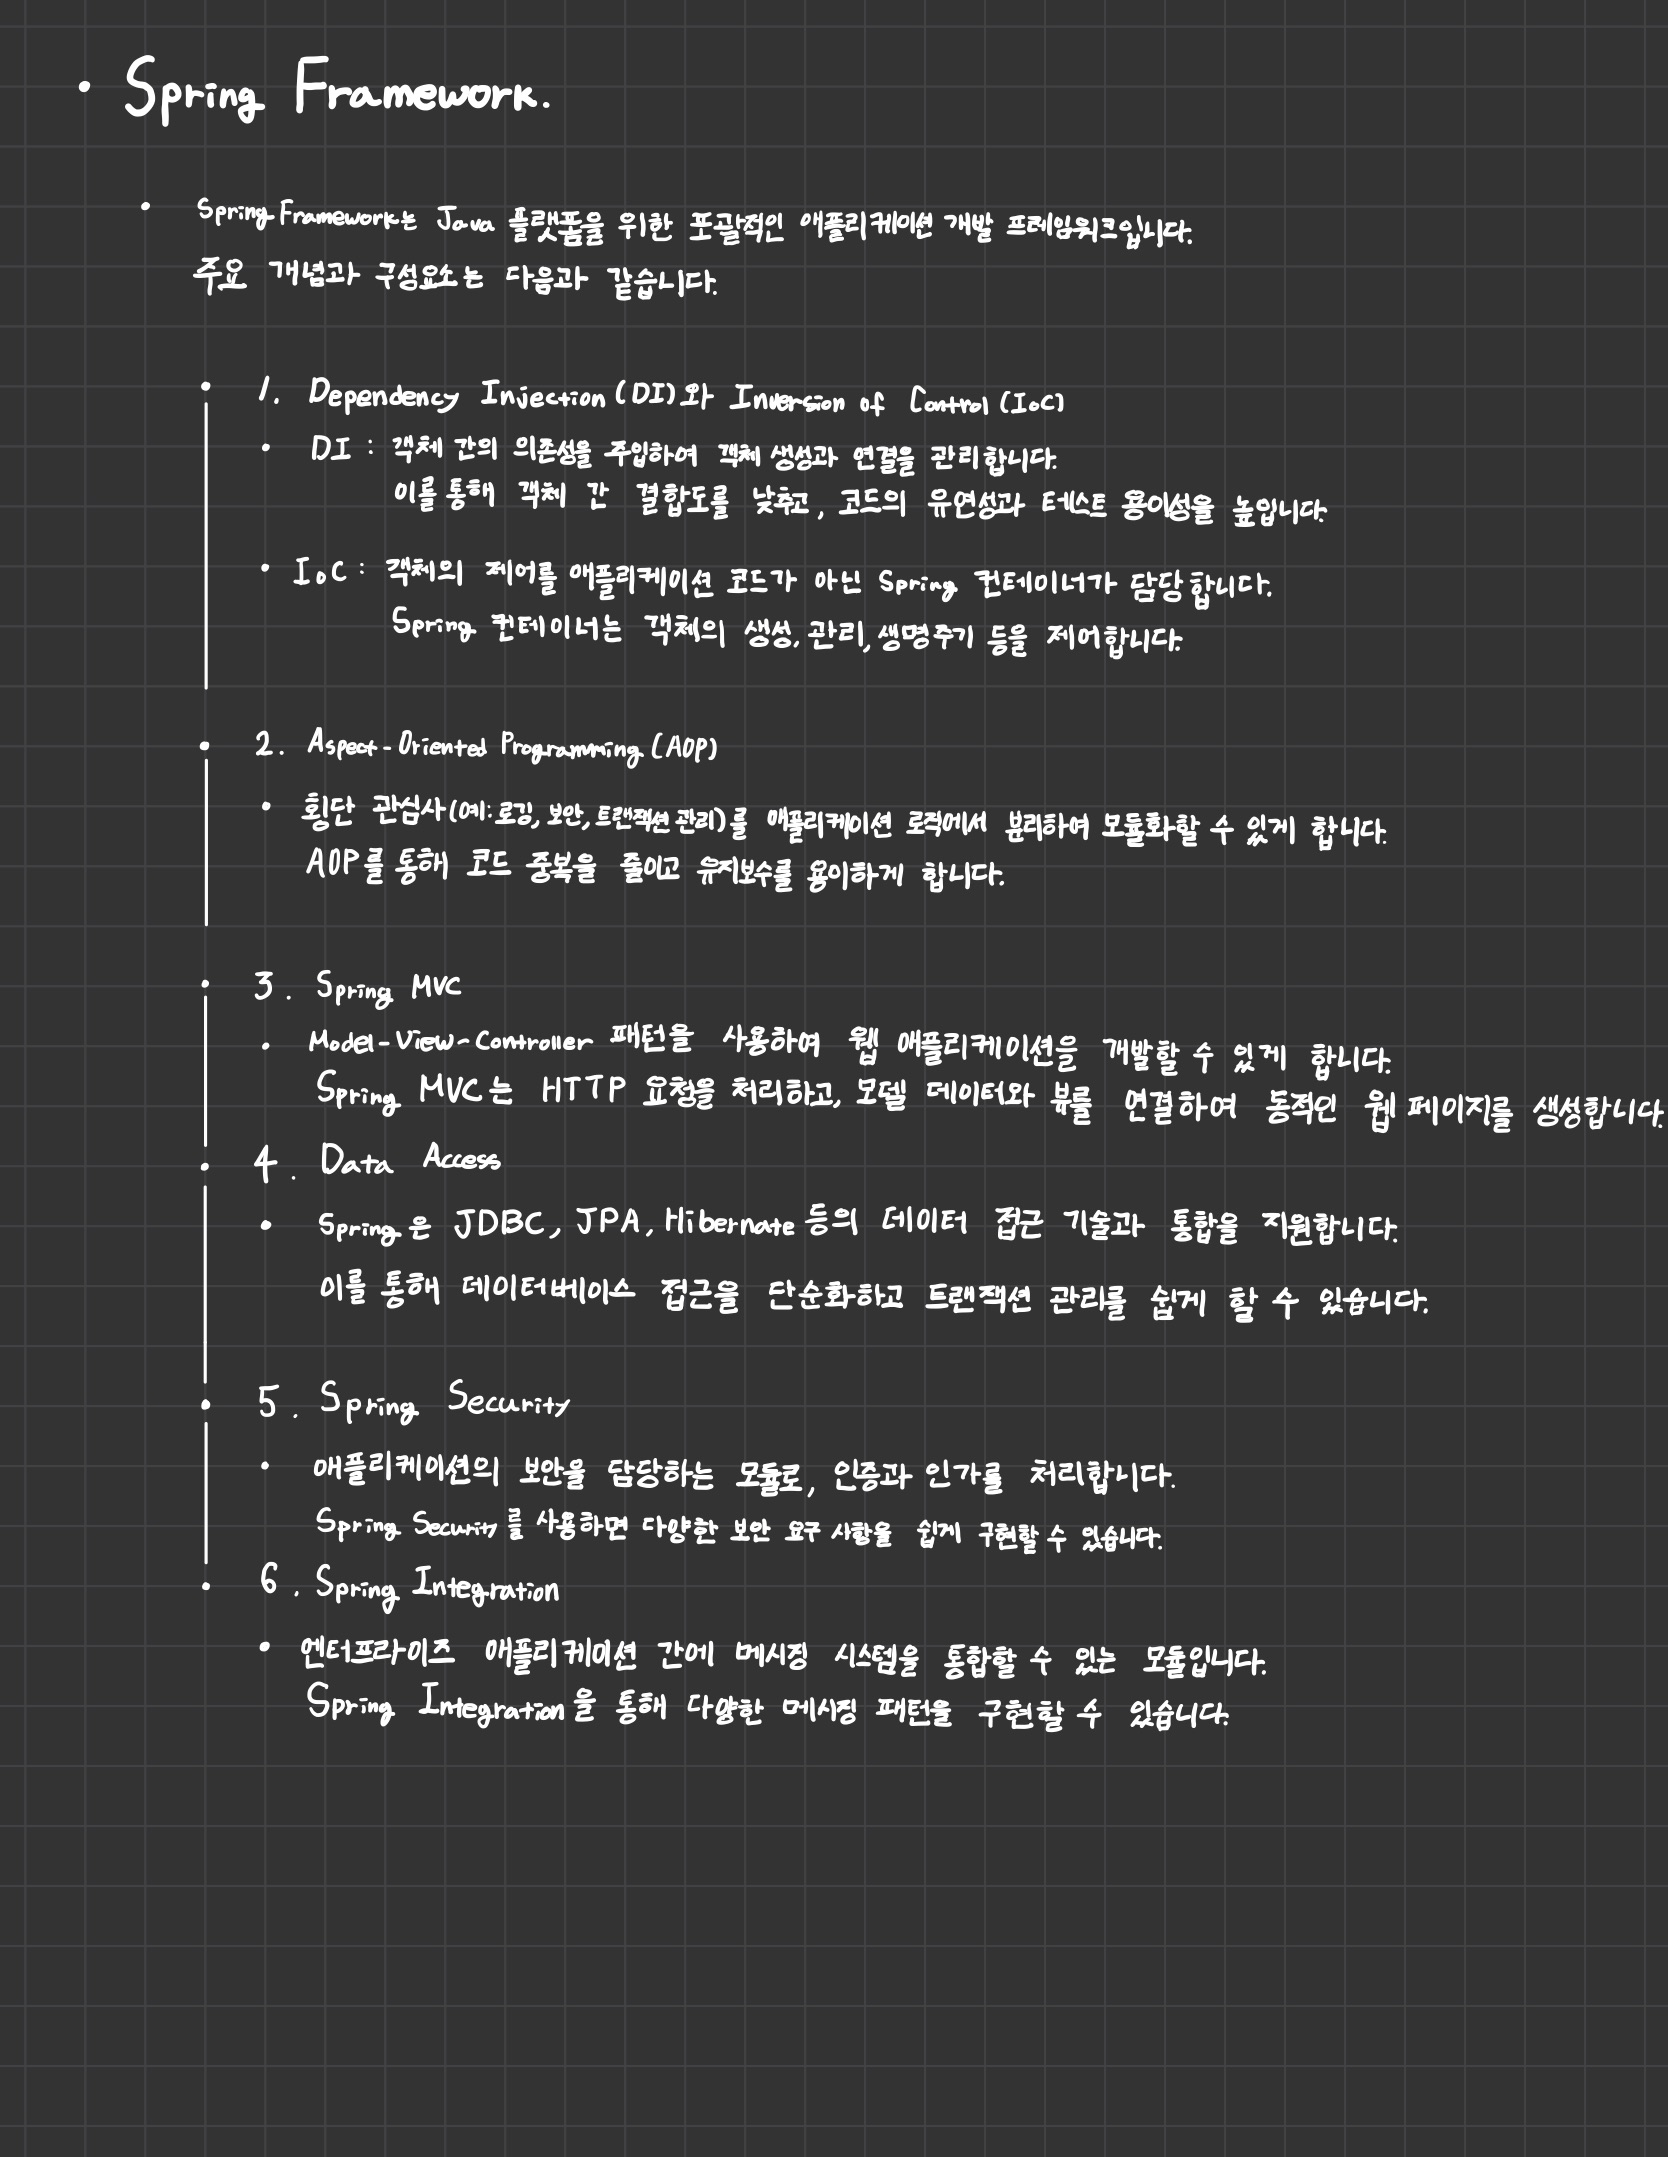 • Spring Framework.
• Spring Framework는 Java 플랫폼을 위한 포괄적인 애플리케이션 개발 프레임워크입니다.
주요 개념과 구성요소는 다음과 같습니다.
• 1. Dependency Injection (DI)와 Inversion of Control (IoC)
• DI : 객체 간의 의존성을 주입하여 객체 생성과 연결을 관리합니다.
이를 통해 객체 간 결합도를 낮추고, 코드의 유연성과 테스트 용이성을 높입니다.
• IoC : 객체의 제어를 애플리케이션 코드가 아닌 Spring 컨테이너가 담당합니다.
Spring 컨테이너는 객체의 생성, 관리, 생명주기 등을 제어합니다.
• 2. Aspect-Oriented Programming (AOP)
• 횡단 관심사(예: 로깅, 보안, 트랜잭션 관리)를 애플리케이션 로직에서 분리하여 모듈화할 수 있게 합니다.
AOP를 통해 코드 중복을 줄이고 유지보수를 용이하게 합니다.
• 3. Spring MVC
• Model-View-Controller 패턴을 사용하여 웹 애플리케이션을 개발할 수 있게 합니다.
Spring MVC는 HTTP 요청을 처리하고, 모델 데이터와 뷰를 연결하여 동적인 웹 페이지를 생성합니다.
• 4. Data Access
• Spring은 JDBC, JPA, Hibernate 등의 데이터 접근 기술과 통합을 지원합니다.
이를 통해 데이터베이스 접근을 단순화하고 트랜잭션 관리를 쉽게 할 수 있습니다.
• 5. Spring Security
• 애플리케이션의 보안을 담당하는 모듈로, 인증과 인가를 처리합니다.
Spring Security를 사용하면 다양한 보안 요구 사항을 쉽게 구현할 수 있습니다.
• 6. Spring Integration
• 엔터프라이즈 애플리케이션 간에 메시징 시스템을 통합할 수 있는 모듈입니다.
Spring Integration을 통해 다양한 메시징 패턴을 구현할 수 있습니다.